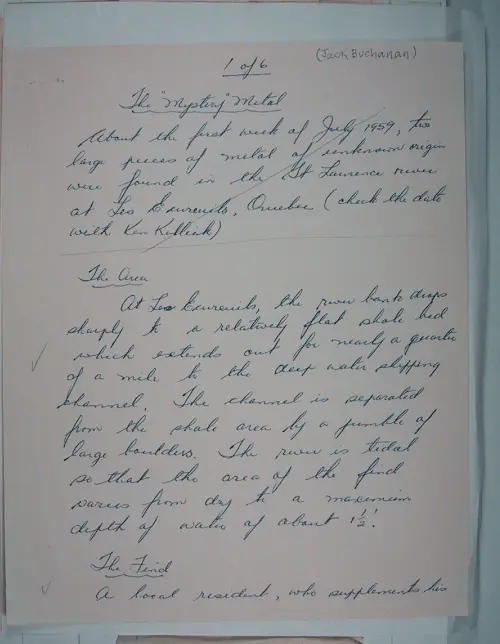 (Jack Buchanan)
1 of 6
The "Mystery" Metal
About the first week of July 1959, two
large pieces of metal of unknown origin
were found in the St Lawrence river
at Les Ecureuils, Quebec (check the date
with Ken)
The Area
At Les Ecureuils, the river bank drops
sharply to a relatively flat shale bed
which extends out for nearly a quarter
of a mile to the deep water shipping
channel. The channel is separated
from the shale area by a jumble of
large boulders. The river is tidal
so that the area of the find
varies from dry to a maximum
depth of water of about 1½'.
The Find
A local resident, who supplements his